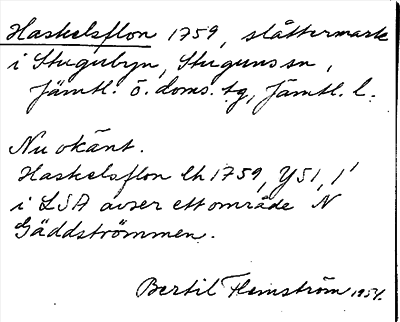 Haskelsflon 1759, slåttermark
i Stugubyn, Stuguns sn,
Jämtl. ö. doms. tg, Jämtl. l.
Nu okänt.
Haskelsflon lh 1759, Y51, 1'
i LSA avser ett område N
Gäddströmmen.
Bertil Flemström 1951.